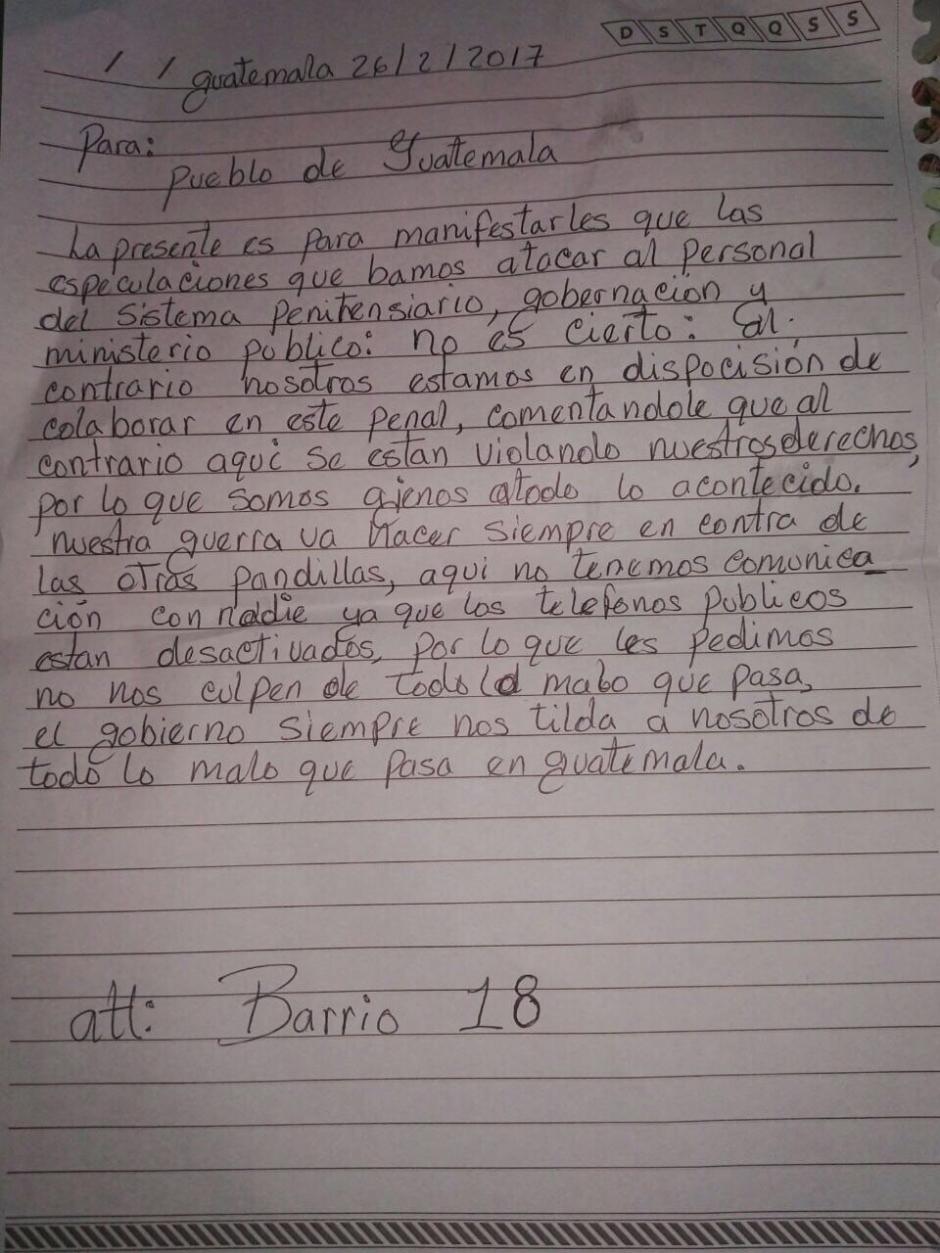 D S T Q Q S S
/ / guatemala 26/2/2017
Para:
Pueblo de Guatemala
La presente es para manifestarles que las
especulaciones que bamos atacar al personal
del sistema penitensiario, gobernacion y
ministerio público: no es cierto: Al.
contrario nosotros estamos en dispocisión de
colaborar en este penal, comentandole que al
contrario aquí se estan violando nuestros derechos,
por lo que somos ajenos atodo lo acontecido.
nuestra guerra va hacer siempre en contra de
las otras pandillas, aqui no tenemos comunica
ción con nadie ya que los telefonos publicos
estan desactivados, por lo que les pedimos
no nos culpen de todo lo mabo que pasa,
el gobierno siempre nos tilda a nosotros de
todo lo malo que pasa en guatemala.
att: Barrio 18